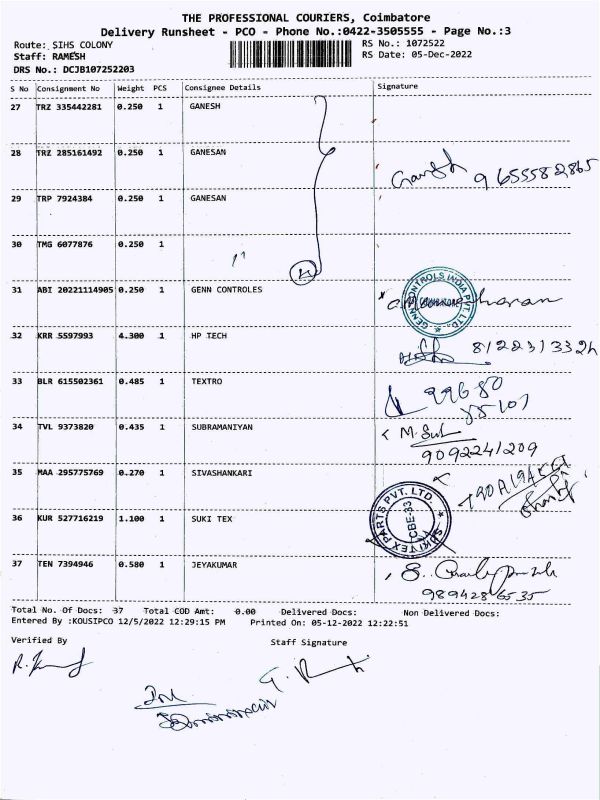 THE PROFESSIONAL COURIERS, Coimbatore
Delivery Runsheet - PCO - Phone No.:0422-3505555 - Page No.:3
Route: SIHS COLONY RS No.: 1072522
Staff: RAMESH RS Date: 05-Dec-2022
DRS No.: DCJB107252203
S No Consignment No Weight PCS Consignee Details Signature
27 TRZ 335442281 0.250 1 GANESH
28 TRZ 285161492 0.250 1 GANESAN
Ganesh 9655582865
29 TRP 7924384 0.250 1 GANESAN
30 TMG 6077876 0.250 1 "
4
31 ABI 20221114905 0.250 1 GENN CONTROLES
GENN CONTROLS INDIA PVT. LTD.
32 KRR 5597993 4.300 1 HP TECH
33 BLR 615502361 0.485 1 TEXTRO
99680
55107
34 TVL 9373820 0.435 1 SUBRAMANIYAN
9092241209
35 MAA 295775769 0.270 1 SIVASHANKARI
36 KUR 527716219 1.100 1 SUKI TEX
SUKI TEX PARTS PVT. LTD.
CBE-33
37 TEN 7394946 0.580 1 JEYAKUMAR
9894286535
Total No. Of Docs: 37 Total COD Amt: 0.00 Delivered Docs: Non Delivered Docs:
Entered By :KOUSIPCO 12/5/2022 12:29:15 PM Printed On: 05-12-2022 12:22:51
Verified By Staff Signature